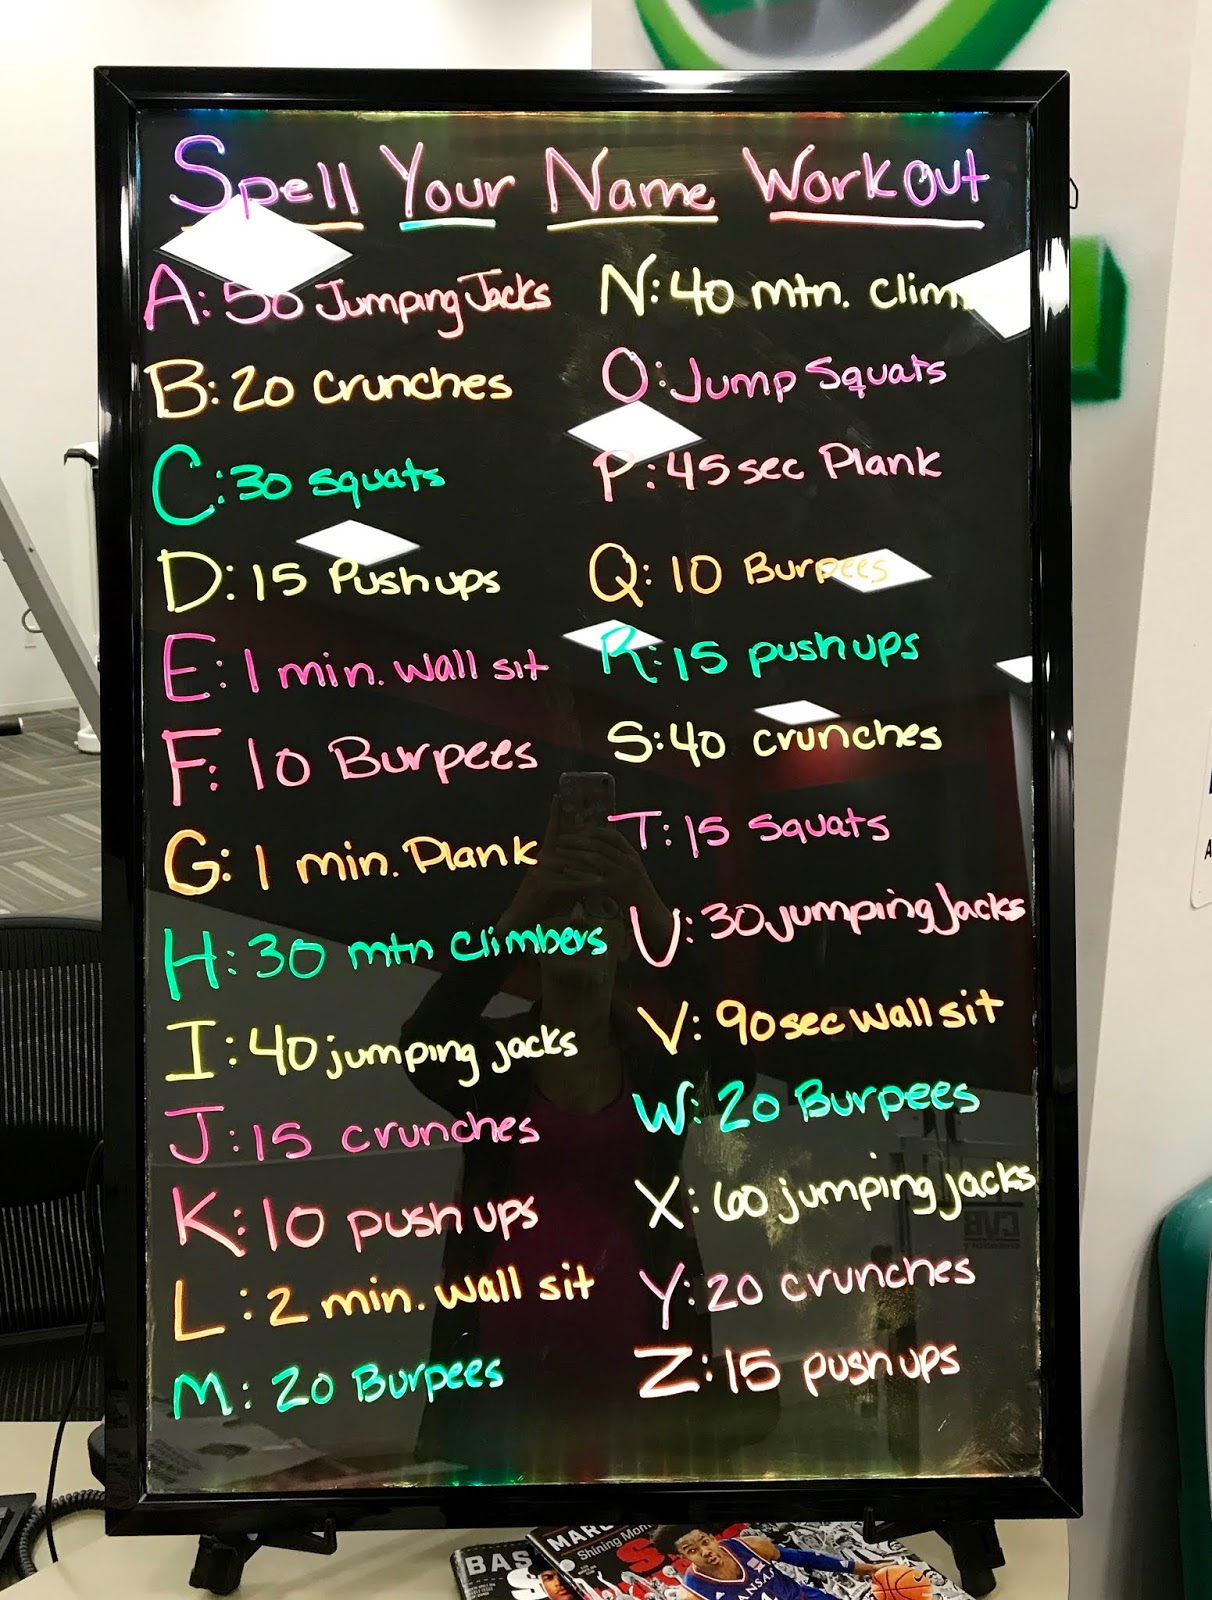 Spell Your Name Work Out
A: 50 Jumping Jacks
B: 20 Crunches
C: 30 squats
D: 15 Push ups
E: 1 min. wall sit
F: 10 Burpees
G: 1 min. Plank
H: 30 mtn Climbers
I: 40 jumping jacks
J: 15 crunches
K: 10 push ups
L: 2 min. wall sit
M: 20 Burpees
N: 40 mtn.
O: Jump Squats
P: 45 sec Plank
Q: 10 Burpees
R: 15 push ups
S: 40 crunches
T: 15 Squats
U: 30 jumping Jacks
V: 90 sec wall sit
W: 20 Burpees
X: 60 jumping jacks
Y: 20 crunches
Z: 15 push ups
BAS
MAR
Shining Mom
KANSAS
CVB
A